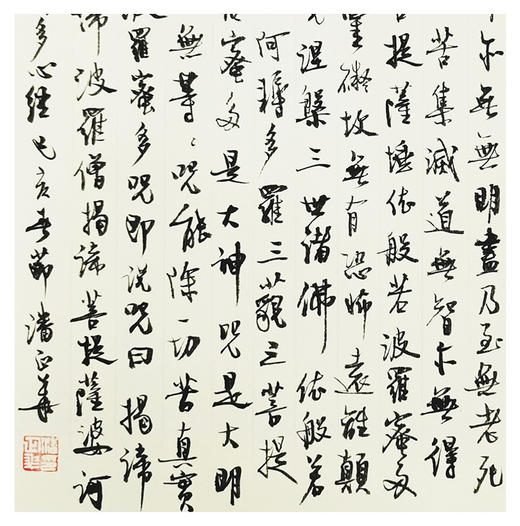 亦无無明盡乃至無老死
苦集滅道無智亦無得
菩提薩埵依般若波羅蜜多
罣礙故無有恐怖遠離顛
究涅槃三世諸佛依般若
阿耨多羅三藐三菩提
蜜多是大神咒是大明
無等々咒能除一切苦真實
波羅蜜多咒即說咒曰揭諦
諦波羅僧揭諦菩提薩婆訶
多心經己亥春節潘正華